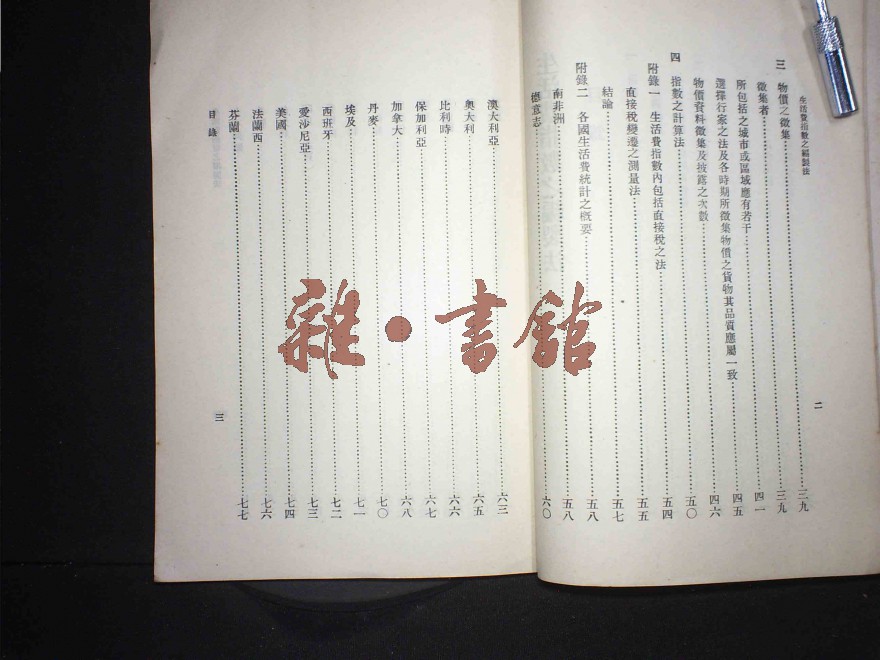 生活費指數之編製法
二
三 物價之徵集……三九
徵集者……三九
所包括之城市或區域應有若干……四一
選擇行家之法及各時期所徵集物價之貨物其品質應屬一致……四五
物價資料徵集及披露之次數……四六
四 指數之計算法……五〇
附錄一 生活費指數內包括直接稅之法……五四
直接稅變遷之測量法……五五
結論……五七
附錄二 各國生活費統計之概要……五八
南非洲……五八
德意志……六〇
澳大利亞……六三
奧大利……六五
比利時……六六
保加利亞……六七
加拿大……六八
丹麥……七〇
埃及……七一
西班牙……七二
愛沙尼亞……七三
美國……七四
法蘭西……七六
芬蘭……七七
目錄
三
雜·書館